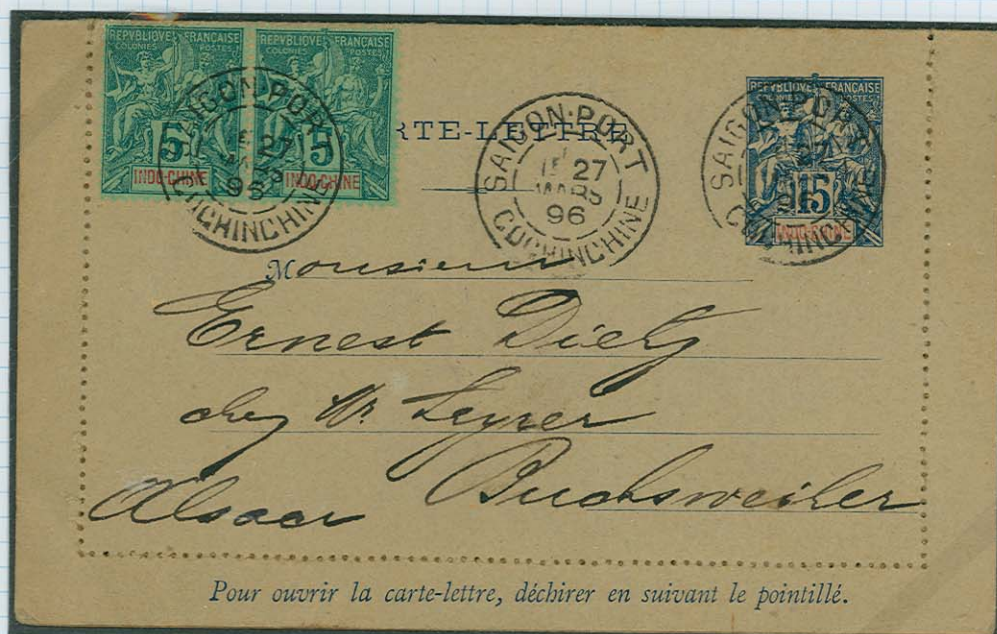 REPVBLIQVE FRANÇAISE
COLONIES POSTES
5
INDO-CHINE
REPVBLIQVE FRANÇAISE
COLONIES POSTES
5
INDO-CHINE
SAIGON-PORT
27
MARS
96
COCHINCHINE
RTE-LETTRE
SAIGON-PORT
27
MARS
96
COCHINCHINE
REPVBLIQVE FRANÇAISE
15
INDO-CHINE
SAIGON-PORT
27
96
COCHINCHINE
Monsieur
Ernest Dietz
chez Mr
Alsace Buchsweiler
Pour ouvrir la carte-lettre, déchirer en suivant le pointillé.